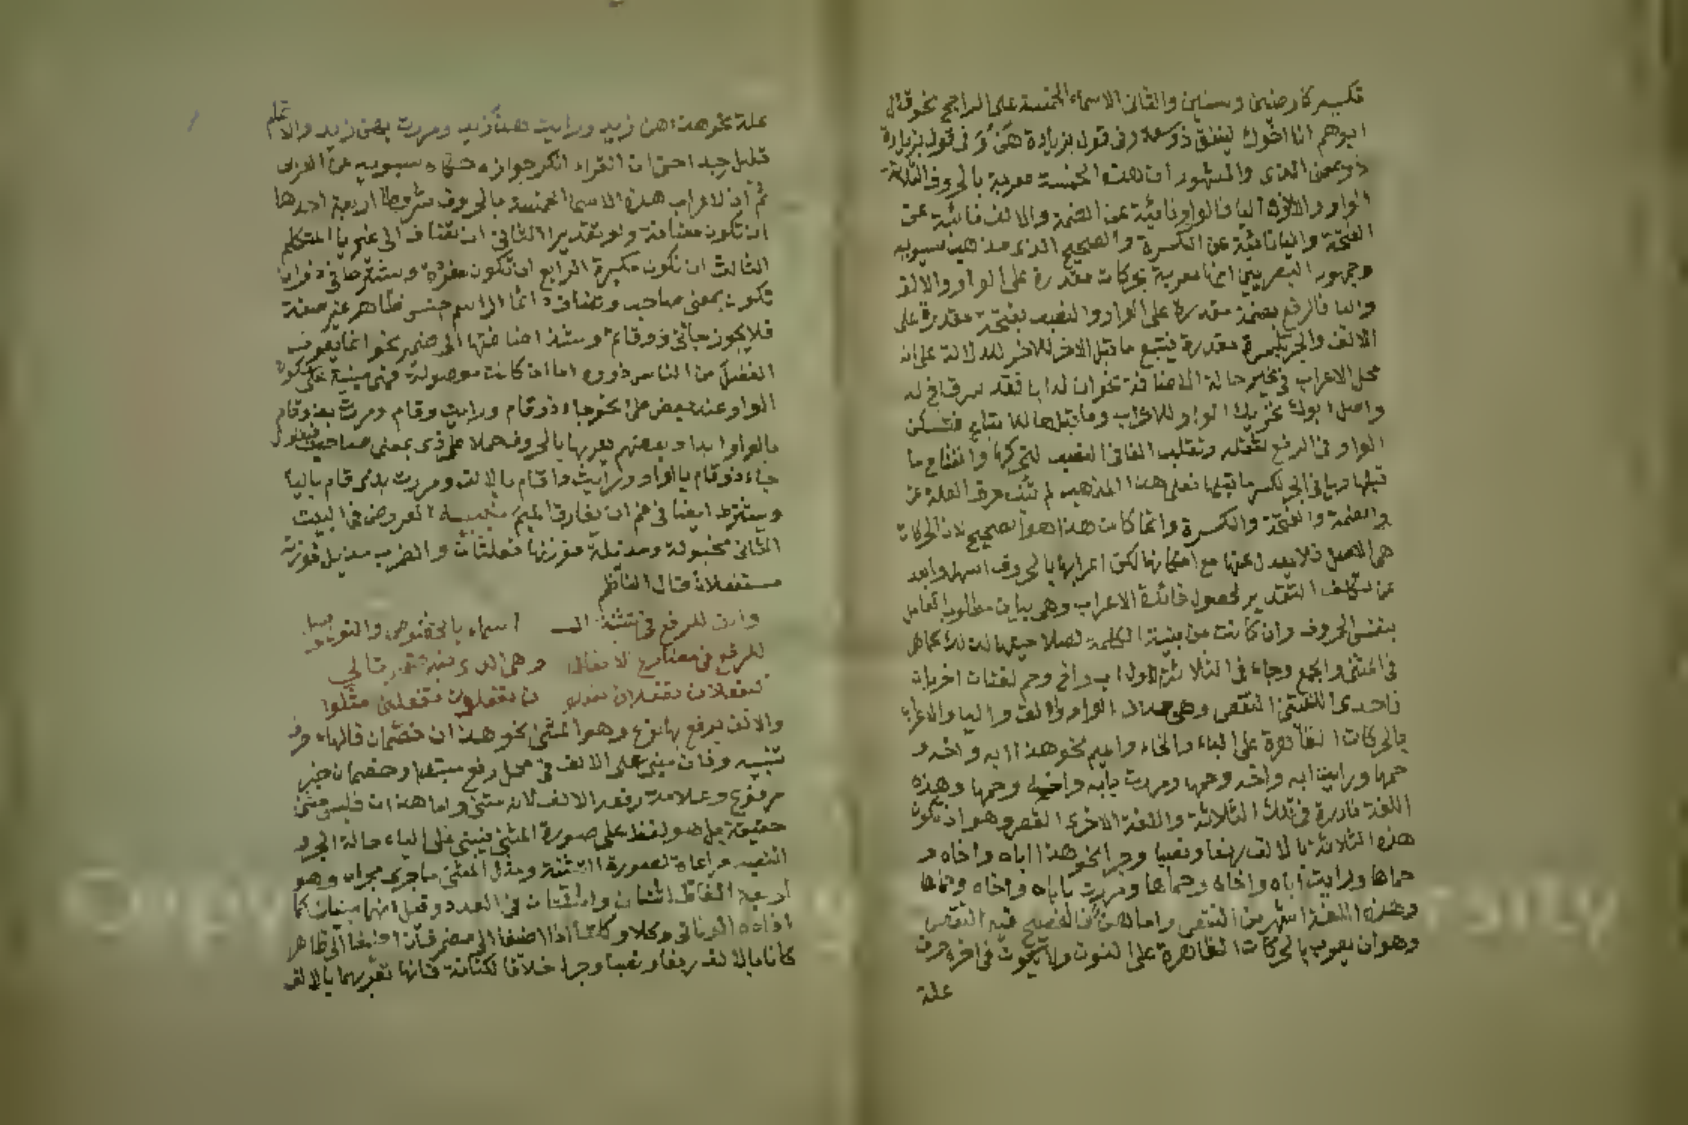 تكسير كارضين وسنين والثاني الاسماء الخمسة على الراجح نحو قال
ابوهم انا اخوك لينفق ذو سعة وفي قول بزيادة هن وفي قول بزيادة
ذو بمعنى الذي والمشهور ان هذه الخمسة معربة بالحروف الثلاثة
الواو والالف واليا فالواو نائبة عن الضمة والالف نائبة عن
الفتحة واليا نائبة عن الكسرة والصحيح الذي مذهب سيبويه
وجمهور البصريين انها معربة بحركات مقدرة على الواو والالف
واليا فالرفع بضمة مقدرة على الواو والنصب بفتحة مقدرة على
الالف والجر بكسرة مقدرة فيتبع ما قبل الاخر للاخر للدلالة على انه
محل الاعراب في غير حالة الاضافة نحو ان له ابا فقد سرق اخ له
واصل ابوك تحريك الواو للاعراب وما قبلها للاتباع فتسكن
الواو في الرفع لثقله وتقلب الفا في النصب لتحركها وانفتاح ما
قبلها ويا في الجر لكسر ما قبلها فعلى هذا المذهب لم تنب حرف العلة عن
والضمة والفتحة والكسرة وانما كان هذا هو الصحيح لان الحركات
هي الاصل فلا يعدل عنها مع امكانها لكن اعرابها بالحروف اسهل وابعد
عن تكلف التقدير لحصول فائدة الاعراب وهي بيان مطلوب العامل
بنفس الحروف وان كانت من بنية الكلمة لصلاحيتها لذلك كما هي
في المثنى والجمع وجاء في الثلاثة الاول اب واخ وحم لغتان اخريان
فاحدى اللغتين النقص وهي حذف الواو والالف واليا والاعراب
بالحركات الظاهرة على الباء والخاء والميم نحو هذا ابه واخه و
حمها ورايت ابه واخه وحمها ومررت بابه واخه وحمها وهذه
اللغة نادرة في تلك الثلاثة واللغة الاخرى القصر وهو ان تكون
هذه الثلاثة بالالف رفعا ونصبا وجرا نحو هذا اباه واخاه و
حماها ورايت اباه واخاه وحماها ومررت باباه واخاه وحماها
وهذه اللغة اشهر من النقص واما هن فالفصيح فيه النقص
وهو ان يعرب بالحركات الظاهرة على النون ولا يكون في اخره حرف
علة
علة نحو هذا هن زيد ورايت هن زيد ومررت بهن زيد والاتمام
قليل جدا حتى ان الفراء انكر جوازه حكاه سيبويه عن العرب
ثم ان لاعراب هذه الاسما الخمسة بالحروف شروطا اربعة احدها
ان تكون مضافة ولو تقديرا الثاني ان تضاف الى غير يا المتكلم
الثالث ان تكون مكبرة الرابع ان تكون مفردة ويشترط في ذو ان
تكون بمعنى صاحب وتضاف دائما الى اسم جنس ظاهر غير صفة
فلا يجوز جاءني ذو قائم وشذ اضافتها الى ضمير نحو انما يعرف
الفضل من الناس ذووه اما ان كانت موصولة فهي مبنية على سكون
الواو عند بعض طي نحو جاء ذو قام ورايت ذو قام ومررت بذو قام
بالواو ابدا وبعضهم يعربها بالحروف حملا على ذي بمعنى صاحب فيقول
جاء ذو قام بالواو ورايت ذا قام بالالف ومررت بذي قام باليا
ويشترط ايضا في فم ان يفارق الميم تنبيه العروض في البيت
الثاني مخبولة ومذيلة فوزنها فعلتان والضرب مذيل فوزنه
مستفعلان قال الناظم
والف للرفع في تثنية الـ اسماء بالخصوص والنون جعل
للرفع في مضارع الافعال وهي الذي
تفعلان يفعلان تفعلو ن يفعلون تفعلين مثلوا
والالف يرفع بها نوع وهو المثنى نحو هذان خصمان فالهاء حرف
تنبيه وذان مبني على الالف في محل رفع مبتدا وخصمان خبر
مرفوع وعلامة رفعه الالف لانه مثنى واما هذان فليس مثنى
حقيقة بل هو لفظ على صورة المثنى فيبنى على الياء حالة الجر و
النصب مراعاة لصورة التثنية ومثل المثنى ما جرى مجراه وهو
اربعة الفاظ اثنان واثنتان في العدد وقيل انهما مبنيان كما
افاده وكلا وكلتا اذا اضيفا الى مضمر فان اضيفا الى ظاهر
كانا بالالف رفعا ونصبا وجرا خلافا لكنانة فانها تعربهما بالالف